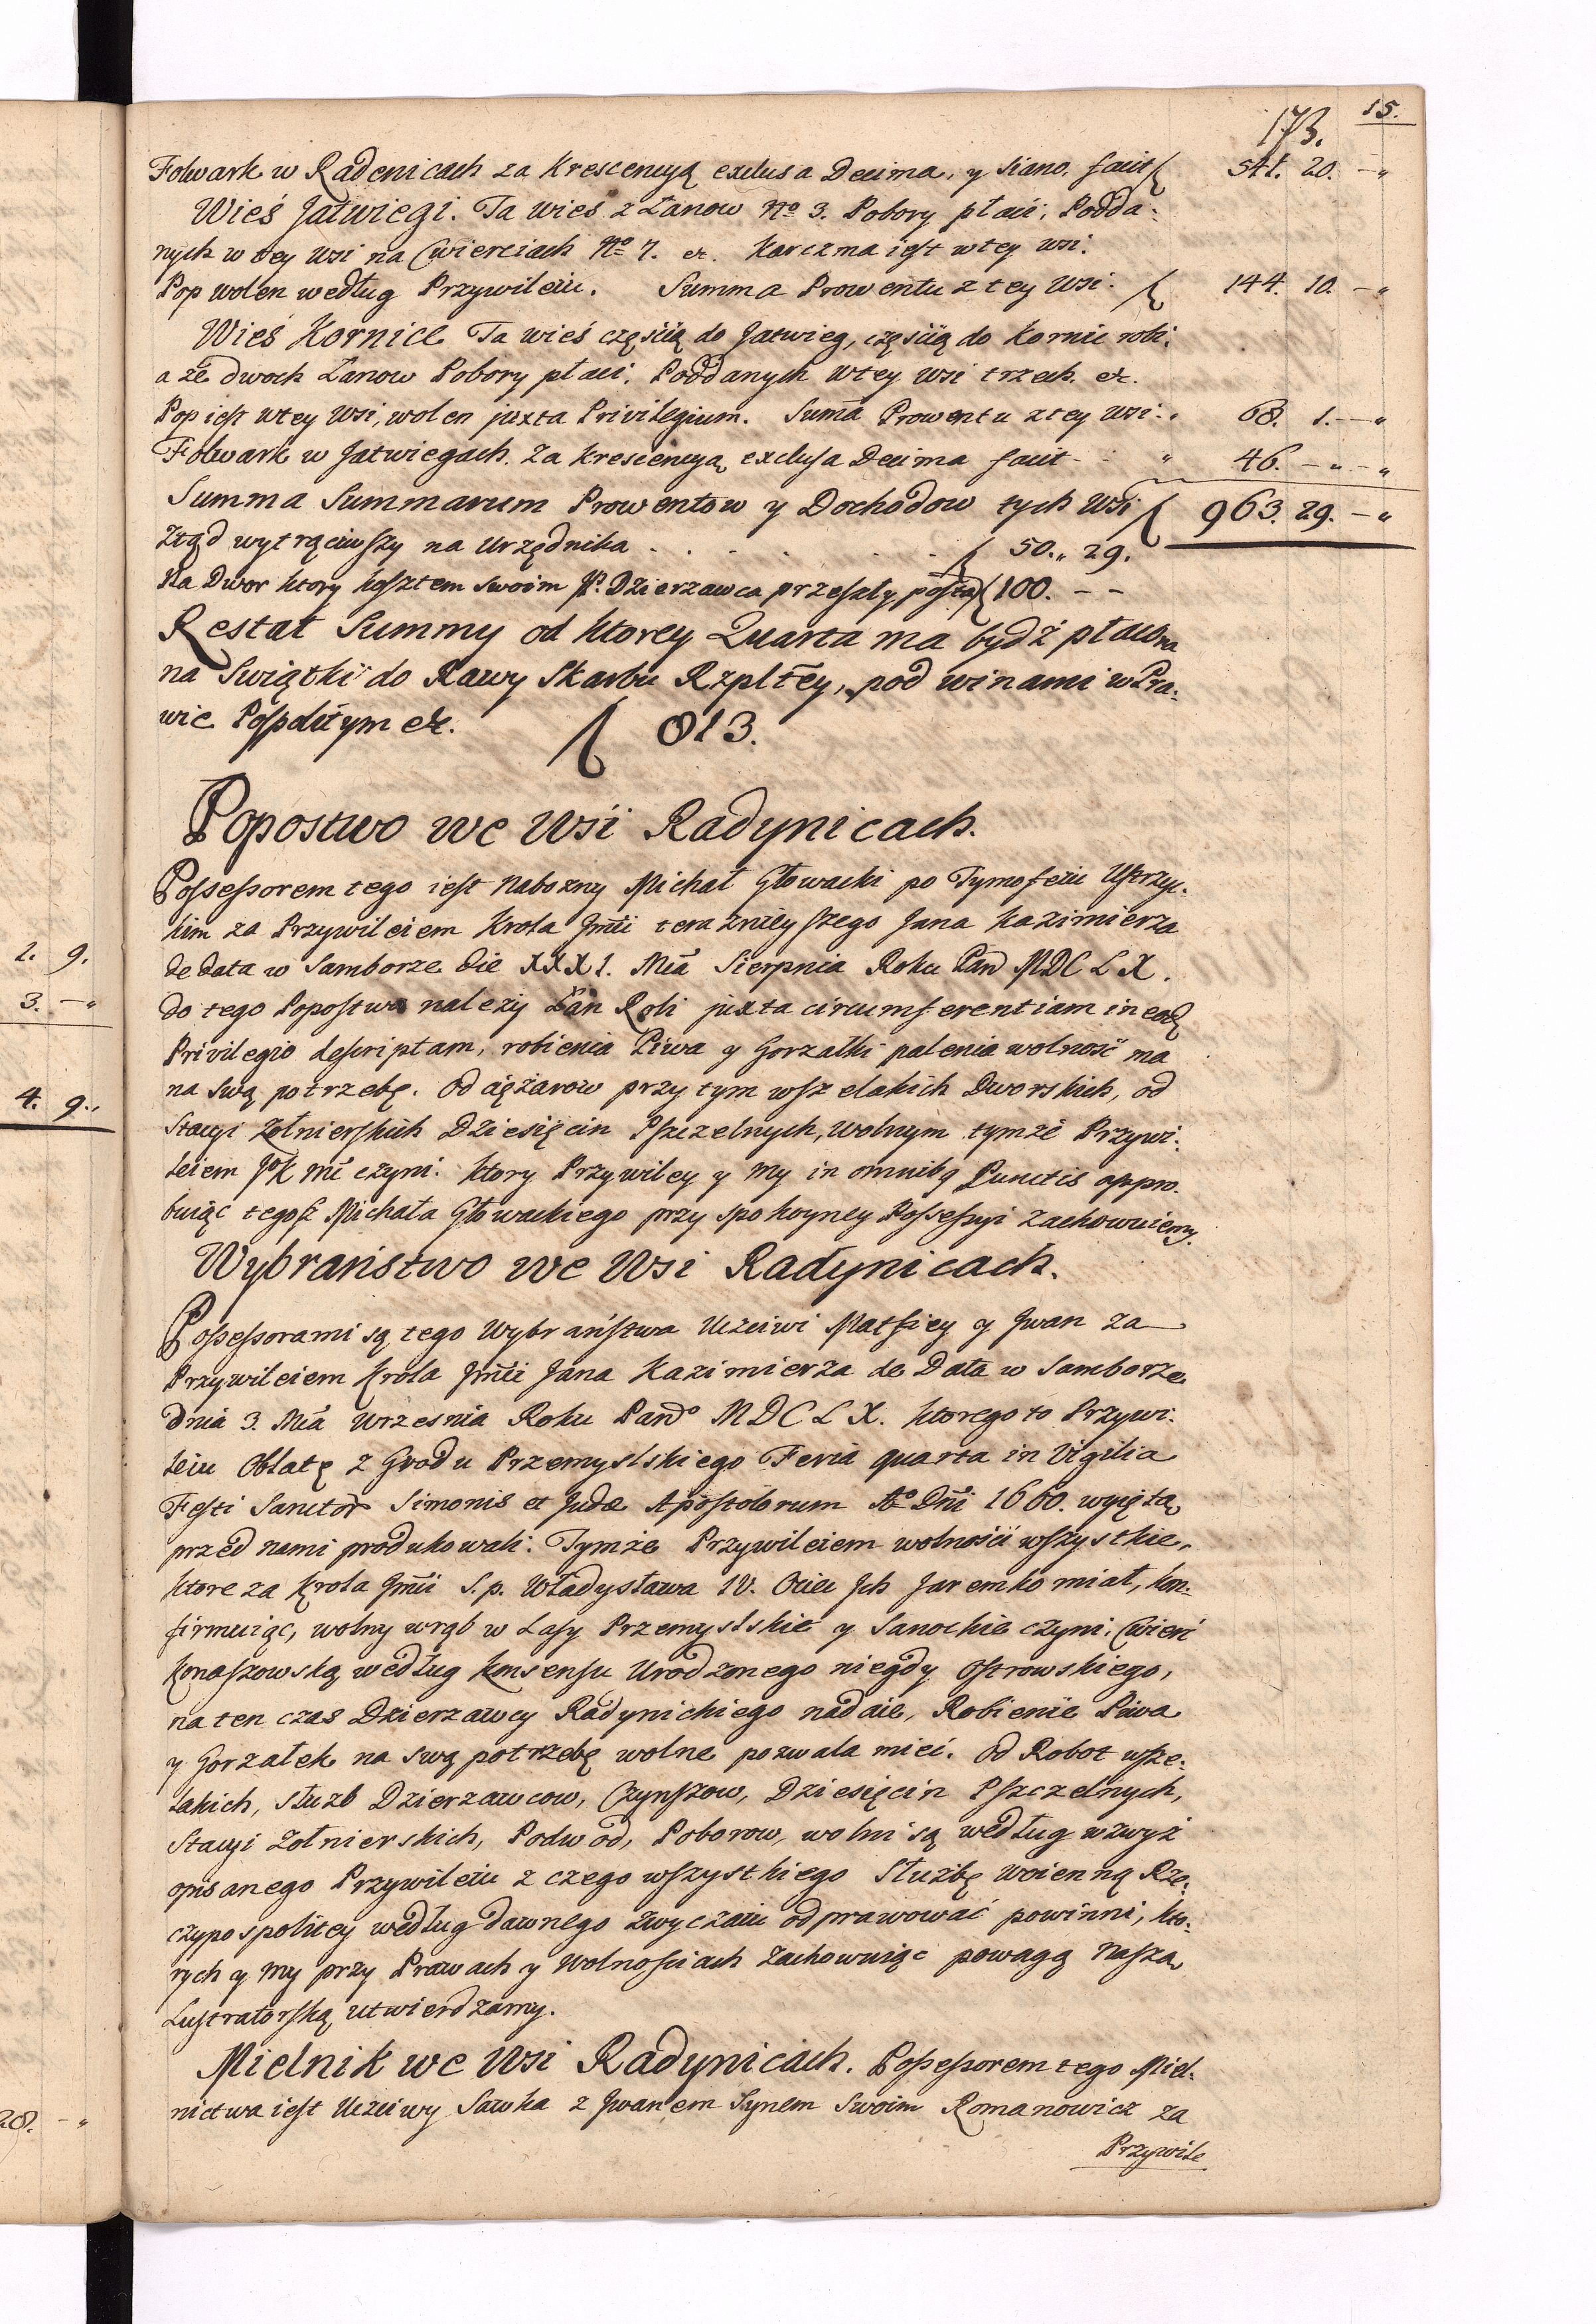 15.
173.
Folwark w Radenicach za Krescencyą exclusa Decima, y Siano. facit ƒ 541. 20. — „
Wieś Jatwiegi. Ta wieś z Łanow Nº 3. Pobory płaci, Podda-
nych w tey wsi na Cwierciach Nº 7. &. Karczma iest w tey wsi.
Pop wolen według Przywileiu. Summa Prowentu z tey Wsi. ƒ 144. 10. — „
Wieś Kornice Ta wieś częścią do Jatwieg, częścią do Kornic robi,
a że dwoch Łanow Pobory płaci, Poddanych w tey wsi trzech. &.
Pop iest w tey wsi, wolen juxta Privilegium. Suma Prowentu z tey wsi. „ 68. 1. — „
Folwark w Jatwiegach. Za Krescencyą exclusa Decima facit „ 46. — „ — „
Summa Summarum Prowentow y Dochodow tych Wsi ƒ 963. 29. — „
Ztąd wytrąciwszy na Urzędnika . . . . . . ƒ 50. „ 29.
Na Dwor ktory kosztem swoim JP. Dzierzawca przeszły postaw ƒ 100. — —
Restat Summy od ktorey Quarta ma bydź płacona
na Swiątki do Rawy Skarbu Rzpltey, pod winami w Pra-
wie Pospolitym &. ƒ 813.
Popostwo we Wsi Radynicach.
Possessorem tego iest Nabozny Michał Głowacki po Tymofeiu Ustrzyc-
kim za Przywileiem Krola Jmci teraznieyszego Jana Kazimierza
de data w Samborze die XXXI. Mca Sierpnia Roku Pan MDCLX.
do tego Popostwa należy Łan Roli juxta circumferentiam in eodꝫ
Privilegio descriptam, robienia Piwa y Gorzałki palenia wolność ma
na swą potrzebę. Od ciężarow przytym wszelakich Dworskich, od
Stacyi Żołnierskich Dziesięcin Pszczelnych, wolnym tymże Przywi-
leiem JoK Mć czyni. ktory Przywiley y my in omnibꝫ Punctis appro-
buiąc tegoż Michała Głowackiego przy spokoyney Possessyi zachowuiemy.
Wybraństwo we Wsi Radynicach.
Possessorami są tego Wybraństwa Uczciwi Matfiey y Jwan za
Przywileiem Krola Jmci Jana Kazimierza de Data w Samborze
dnia 3. Mca Wrzesnia Roku Pando MDCLX. ktorego to Przywi-
leiu Oblatę z Grodu Przemyslskiego Feria quarta in Vigilia
Festi Sanctor Simonis et Judæ Apostolorum Aº Dni 1660. wyiętą
przed nami produkowali. Tymże Przywileiem wolności wszystkie,
ktore za Krola Jmci S. p. Władysława IV. Ociec Jch Jaremko miał, kon-
firmuiąc, wolny wrąb w Lasy Przemyslskie y Sanockie czyni, Cwierć
Konaszowską według Konsensu Urodzonego niegdy Ostrowskiego,
na ten czas Dzierzawcy Radynickiego nadaie, Robienie Piwa
y Gorzałek na swą potrzebę wolne pozwala mieć. Od Robot wsze-
lakich, służb Dzierzawcow, Czynszow, Dziesięcin Pszczelnych,
Stacyi Żołnierskich, Podwod, Poborow, wolni są według wzwyż
opisanego Przywileiu z czego wszystkiego Służbę woienną Rze-
czypospolitey według dawnego zwyczaiu odprawować powinni, kto-
rych y my przy Prawach y Wolnosciach zachowuiąc powagą naszą
Lustratorską utwierdzamy.
Mielnik we Wsi Radynicach. Possessorem tego Miel-
nictwa iest Uczciwy Sawka z Jwanem Synem swoim Romanowicz za
Przywile
2. 9.
3. — „
4. 9. „
28. — „